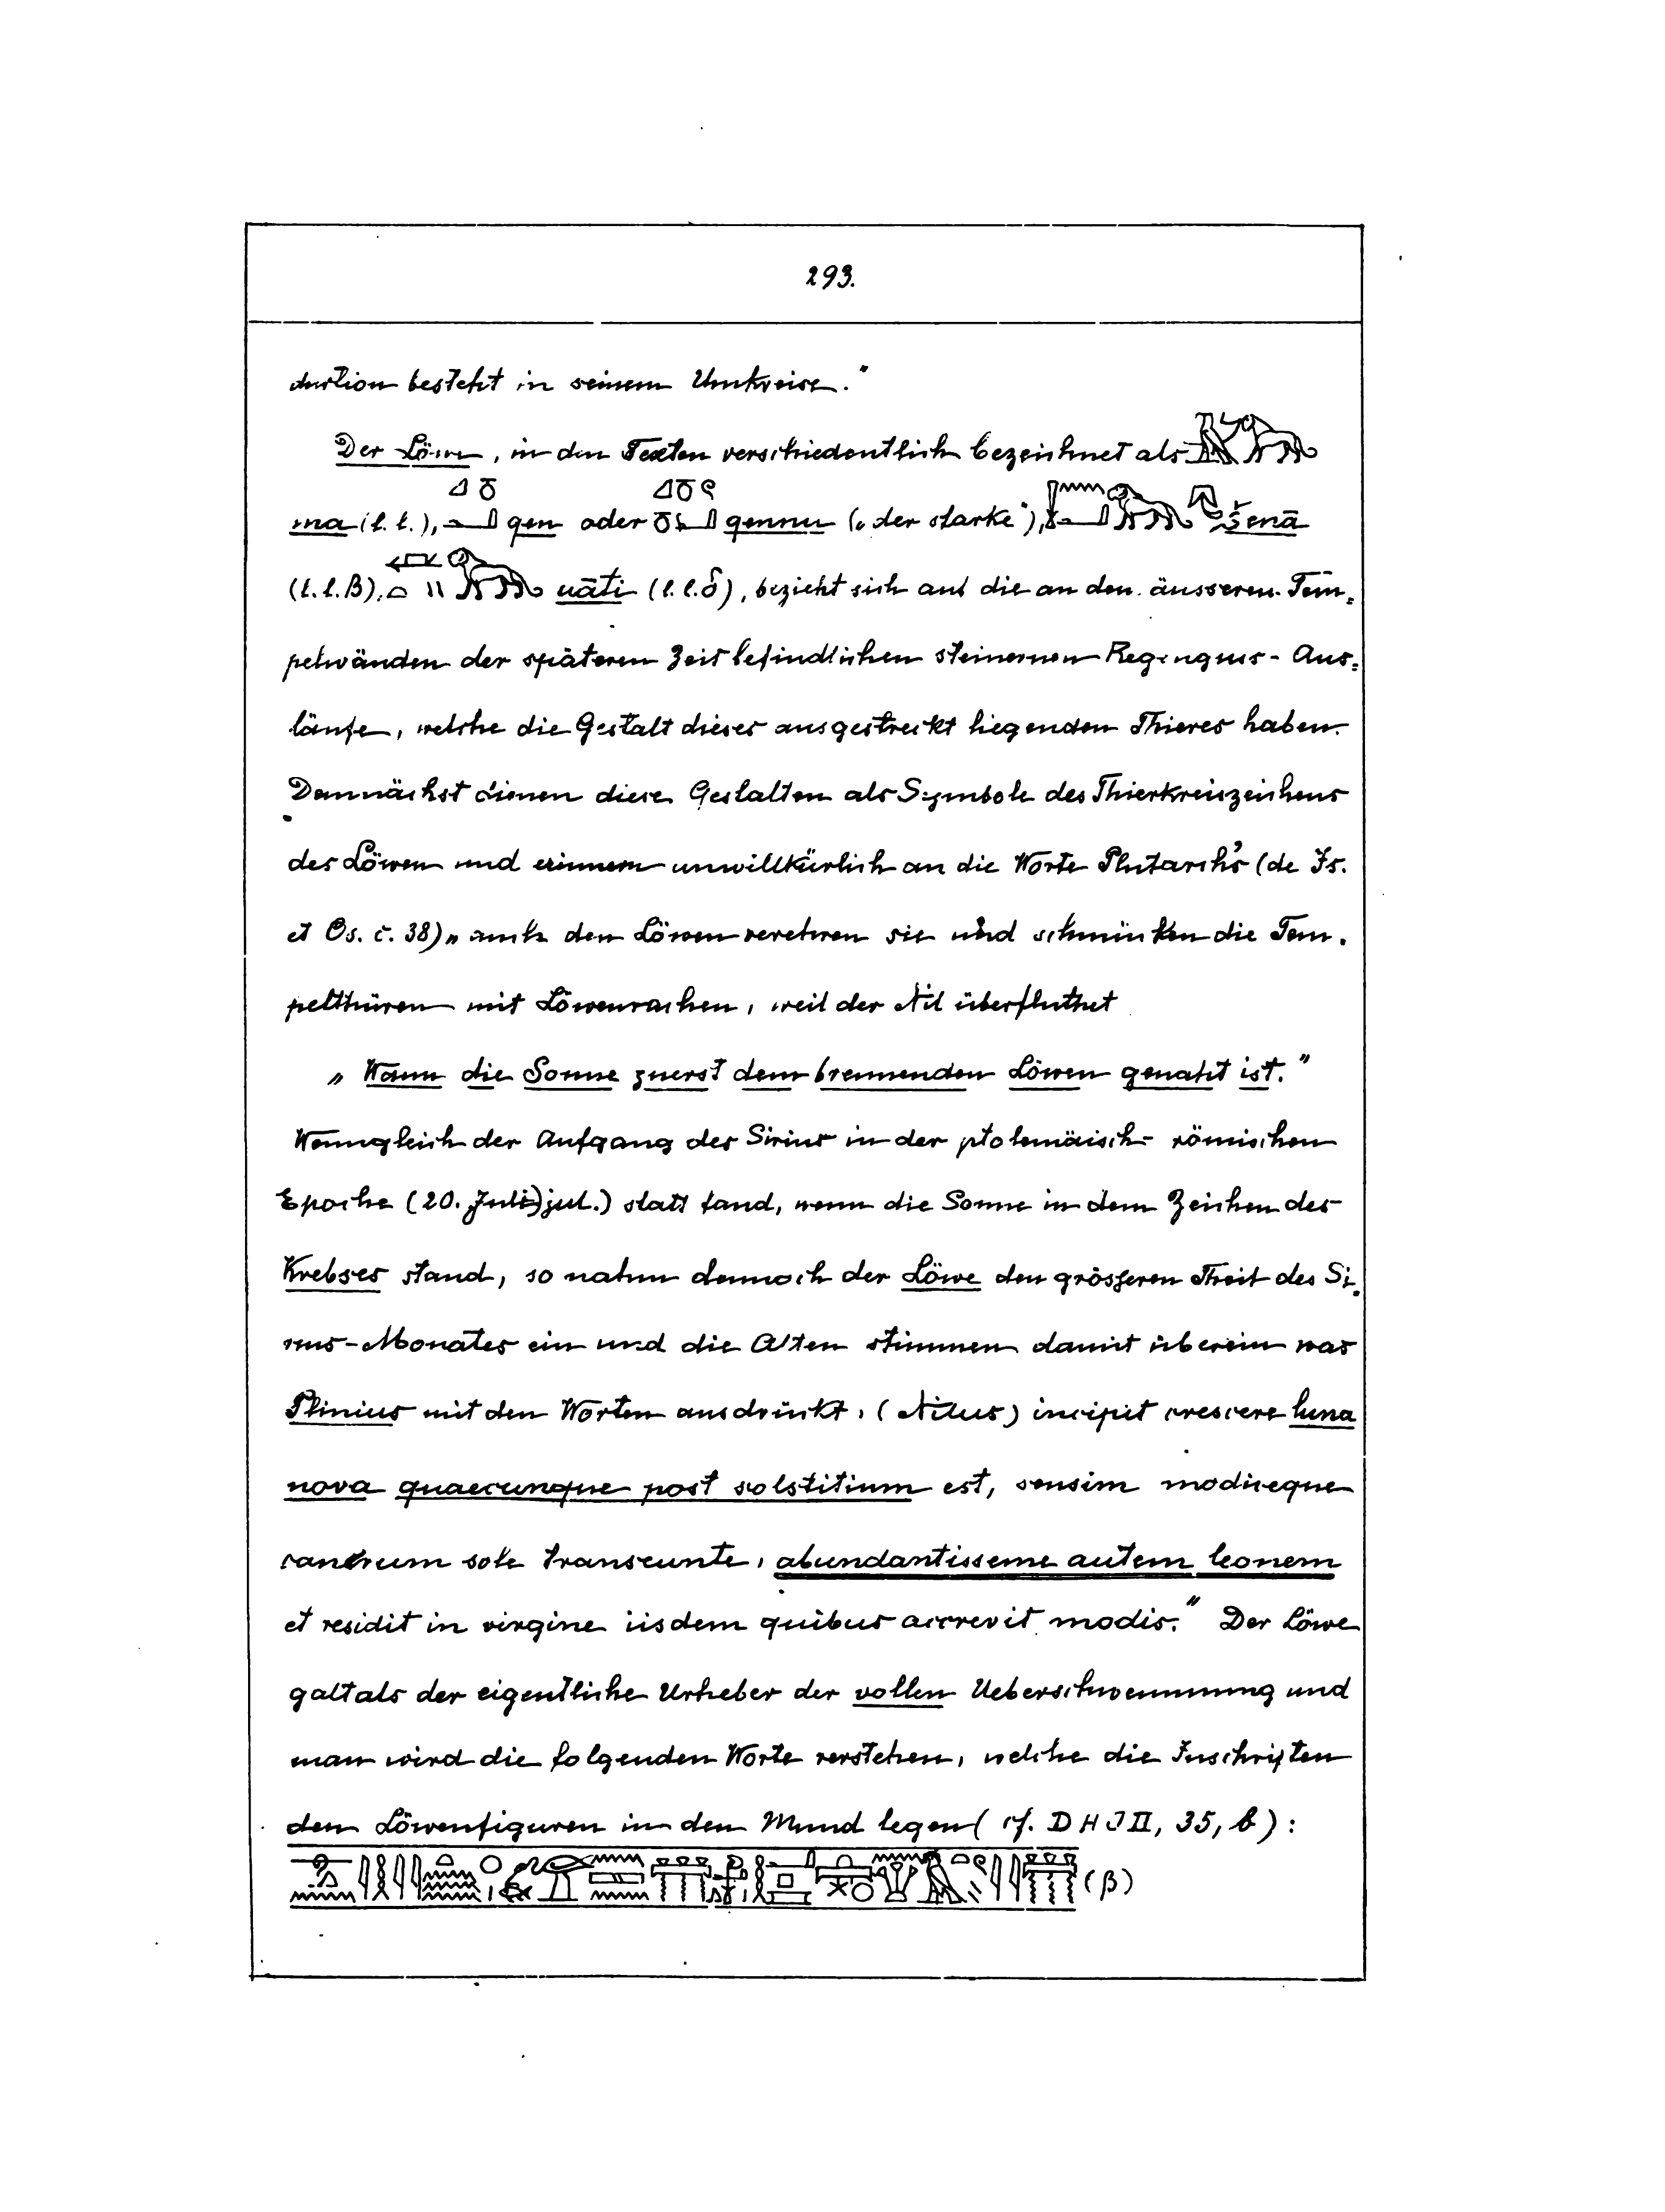 293.
duction besteht in seinem Umkreise."
Der Löwe, in den Texten verschiedentlich bezeichnet als
ma (l. l.), qen oder qennu („der starke"), šenā
(l. l. β), uāti (l. l. δ), bezieht sich auf die an den äusseren Tem=
pelwänden der späteren Zeit befindlichen steinernen Regenguss-Aus=
läufe, welche die Gestalt dieses ausgestreckt liegenden Thieres haben.
Demnächst dienen diese Gestalten als Symbole des Thierkreiszeichens
des Löwen und erinnern unwillkürlich an die Worte Plutarch's (de Is.
et Os. c. 38) „auch den Löwen verehren sie und schmücken die Tem-
pelthüren mit Löwenrachen, weil der Nil überfluthet
„Wann die Sonne zuerst dem brennenden Löwen genaht ist."
Wenngleich der Aufgang des Sirius in der ptolemäisch-römischen
Epoche (20. Juli jul.) statt fand, wenn die Sonne in dem Zeichen des
Krebses stand, so nahm dennoch der Löwe den grösseren Theil des Si-
rius-Monates ein und die Alten stimmen damit überein was
Plinius mit den Worten ausdrückt, (Nilus) incipit crescere luna
nova quaecunque post solstitium est, sensim modiceque
cancrum sole transeunte, abundantisseme autem leonem
et residit in virgine iisdem quibus accrevit modis." Der Löwe
galt als der eigentliche Urheber der vollen Ueberschwemmung und
man wird die folgenden Worte verstehen, welche die Inschriften
den Löwenfiguren in den Mund legen (cf. D H I II, 35, b):
(β)